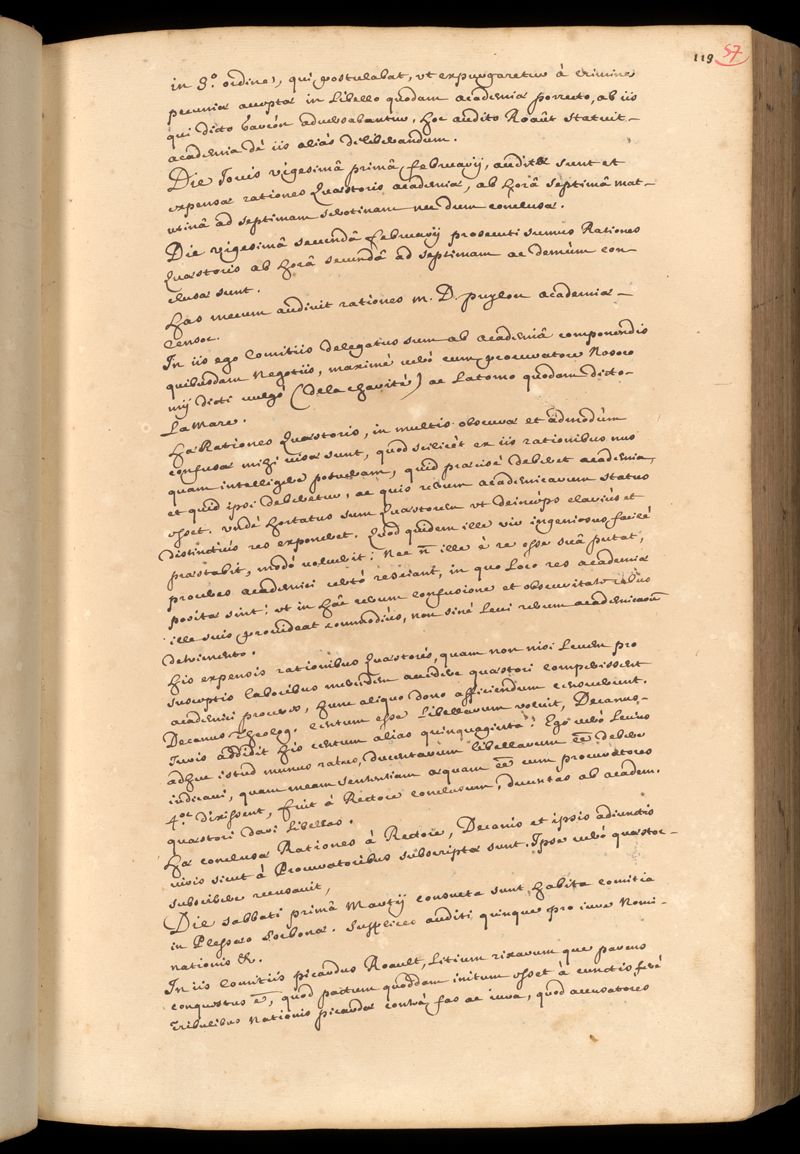 119 57
in 3.º ordine, qui postulabat, vt expurgaretur à crimine
pecuniæ acceptæ in libello quodam academiæ porrecto, ab iis
qui dicto adversabantur, hoc audito Roaût statuit
academia de iis aliàs deliberandum.
Die Jovis vigesimâ primâ februarij, auditæ sunt et
expensæ rationes Quæstoris academiæ, ab horâ septimâ mat-
utinâ ad septimam serotinam nec dum conclusæ.
Die vigesimâ secundâ februarij prosecuti sumus Rationes
Quæstoris ab horâ secundâ ad septimam ac demùm con-
clusæ sunt.
Has mecum audiuit rationes M. D. puylon academiæ
censor.
In iis ego comitiis delegatus sum ab academiâ componendis
quibusdam negotiis, maximè verò cum procuratore Nosoco
mij dicti vulgò (de la charité) ac Latomo quodam dicto
La Mare.
Hæ Rationes Quæstoris, in multis obscuræ et admodùm
confusæ mihi visæ sunt, quod scilicèt ex iis rationibus nus
quam intelligere potueram, quid præcisè deberet academia,
et quid ipsi deberetur, ac quis rerum academicarum status
esset. vndè hortatus sum Quæstorem vt deincèps clariùs et
distinctiùs res exponeret. Quod quidem ille vir ingeniosus facilè
præstabit, modò voluerit: Nec n ille è re esse suâ putat,
proceres academici certò resciant, in quo loco res academiæ
positæ sint: vt in hâc rerum confusione et obscuritate rebus
ille suis provideat commodiùs, non sinè levi rerum academicarū
detrimento.
His expensis rationibus Quæstoris, quam non nisi levem pro
susceptis laboribus mercedem accidere quæstori comperissent
academici proceres, hunc aliquo dono afficiendum censuerunt.
Decanus Theolog. centum esse libellarum voluit, Decanus
Juris addidit his centum alias quinquaginta: Ego verò leuius
adhuc istud munus ratus, ducentarum libellarum eē debere
iudicaui, quam meam sententiam æquam eē cum procuratores
4.or dixissent, fuit à Rectore conclusum, ducentas ab academ.
quæstori dari libellas.
Hæ conclusæ Rationes à Rectore, Decanis et ipsis adiunctis
viris sicut à Procuratoribus subscriptæ sunt. Ipse verò quæstor
subscribere recusauit,
Die sabbati primâ Martij consueta sunt habita comitia
in Plessæo Sorbonæ. Supplices auditi quinque pro iure Nomi-
nationis &c.
In iis comitiis picardus Roault, litium rixarum que parens
conquestus ē, quod pactum quoddam initum esset à cunctis ferè
Tribulibus nationis picardæ contrà fas ac iura, quod accusatores